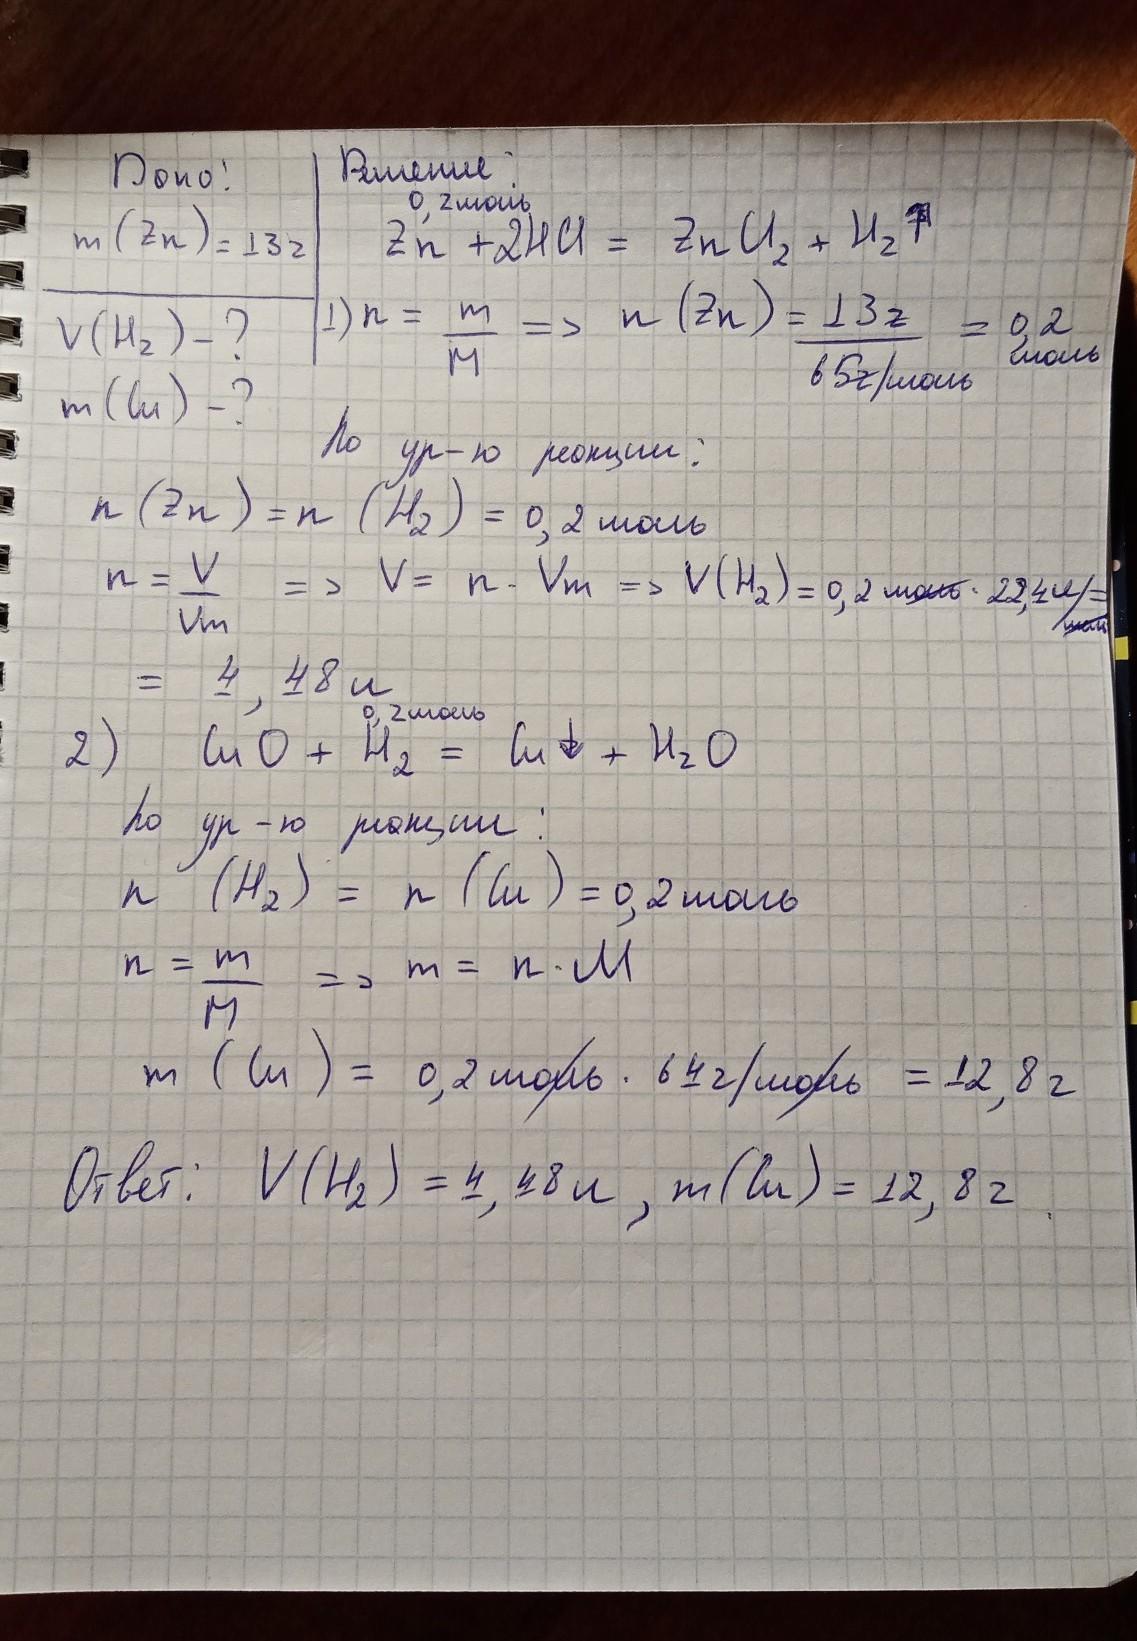 Дано:
m(Zn)=13г
V(H₂)-?
m(Cu)-?
Решение:
0,2моль
Zn + 2HCl = ZnCl₂ + H₂↑
1) n = m/M => n(Zn) = 13г/65г/моль = 0,2 моль
По ур-ю реакции:
n(Zn) = n(H₂) = 0,2 моль
n = V/Vm => V = n · Vm => V(H₂) = 0,2 моль · 22,4 л/моль =
= 4,48 л
0,2моль
2) CuO + H₂ = Cu↓ + H₂O
По ур-ю реакции:
n(H₂) = n(Cu) = 0,2 моль
n = m/M => m = n · M
m(Cu) = 0,2 моль · 64 г/моль = 12,8 г
Ответ: V(H₂) = 4,48 л, m(Cu) = 12,8 г.